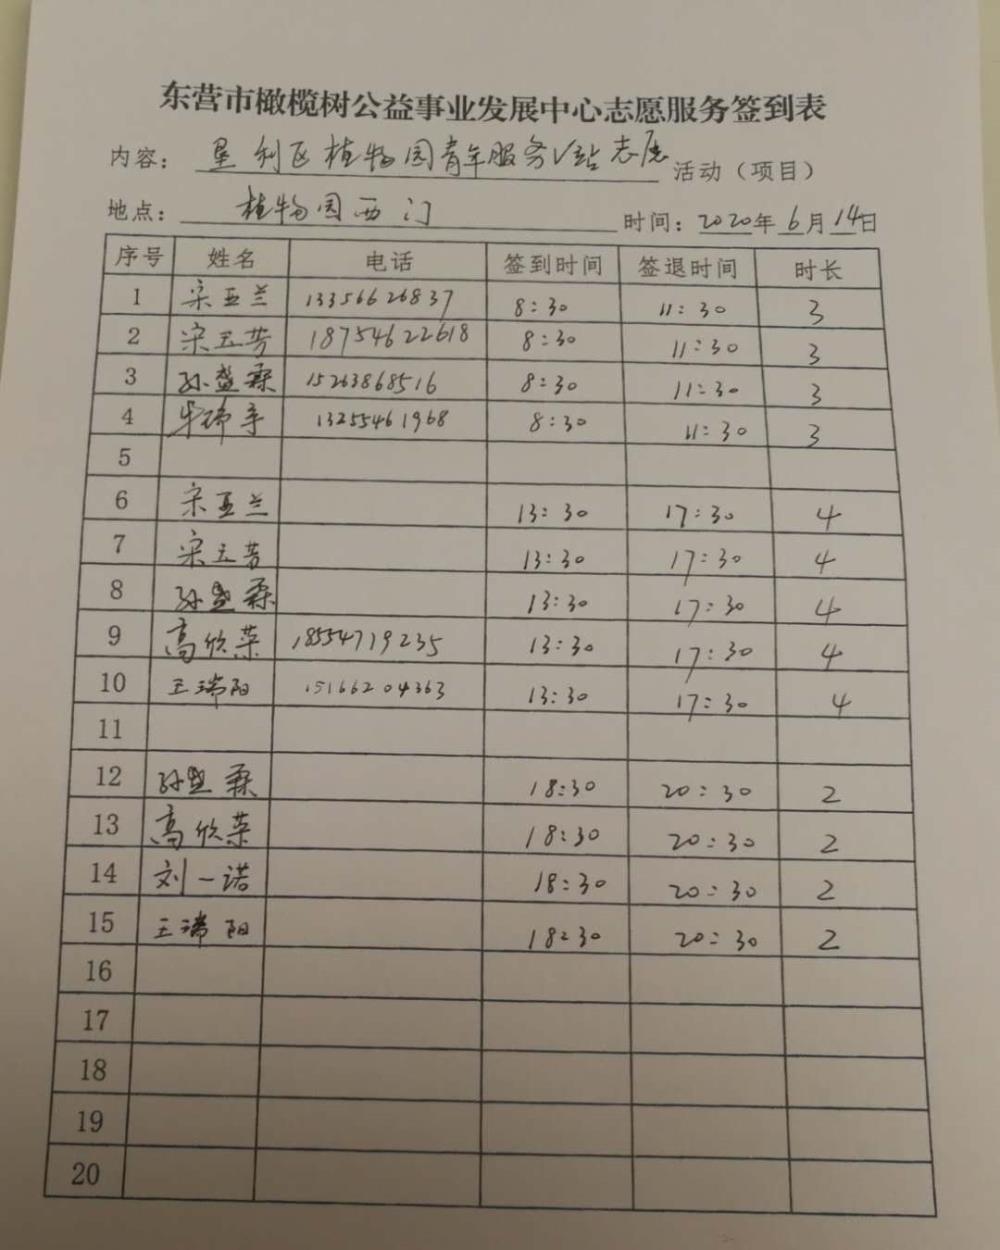 东营市橄榄树公益事业发展中心志愿服务签到表
内容：垦利区植物园青年服务V站志愿活动（项目）
地点：植物园西门 时间：2020年6月14日
序号 姓名 电话 签到时间 签退时间 时长
1 宋亚兰 13356626837 8:30 11:30 3
2 宋玉芳 18754622618 8:30 11:30 3
3 孙盛霖 15263868516 8:30 11:30 3
4 13255461968 8:30 11:30 3
5
6 宋亚兰 13:30 17:30 4
7 宋玉芳 13:30 17:30 4
8 孙盛霖 13:30 17:30 4
9 高欣荣 18554719235 13:30 17:30 4
10 王瑞阳 15166204363 13:30 17:30 4
11
12 孙盛霖 18:30 20:30 2
13 高欣荣 18:30 20:30 2
14 刘一诺 18:30 20:30 2
15 王瑞阳 18:30 20:30 2
16
17
18
19
20